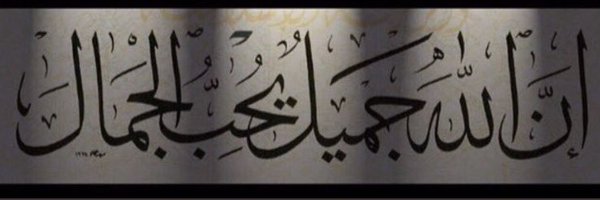 إِنَّ اللّٰهَ جَمِيلٌ يُحِبُّ الْجَمَالَ